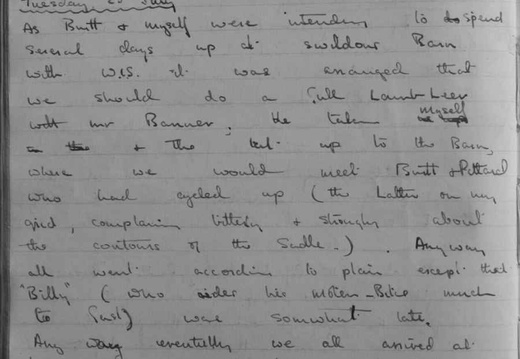 Tuesday 25 July
As Butt & myself were intending to spend
several days up at Swildons Barn
with W.I.S. it was arranged that
we should do a full Lamb Leer
with Mr Banner, He taken myself
& the kit up to the Barn,
where we would meet Butt & Pettard
who had cycled up (the Latter on my
grid, complaining bitterly & strongly about
the contours of the Sadle.). Anyway
all went according to plain except that
"Billy" (who rides his Motor-Bike much
to fast) was somewhat late.
Any way eventually we all arrived at